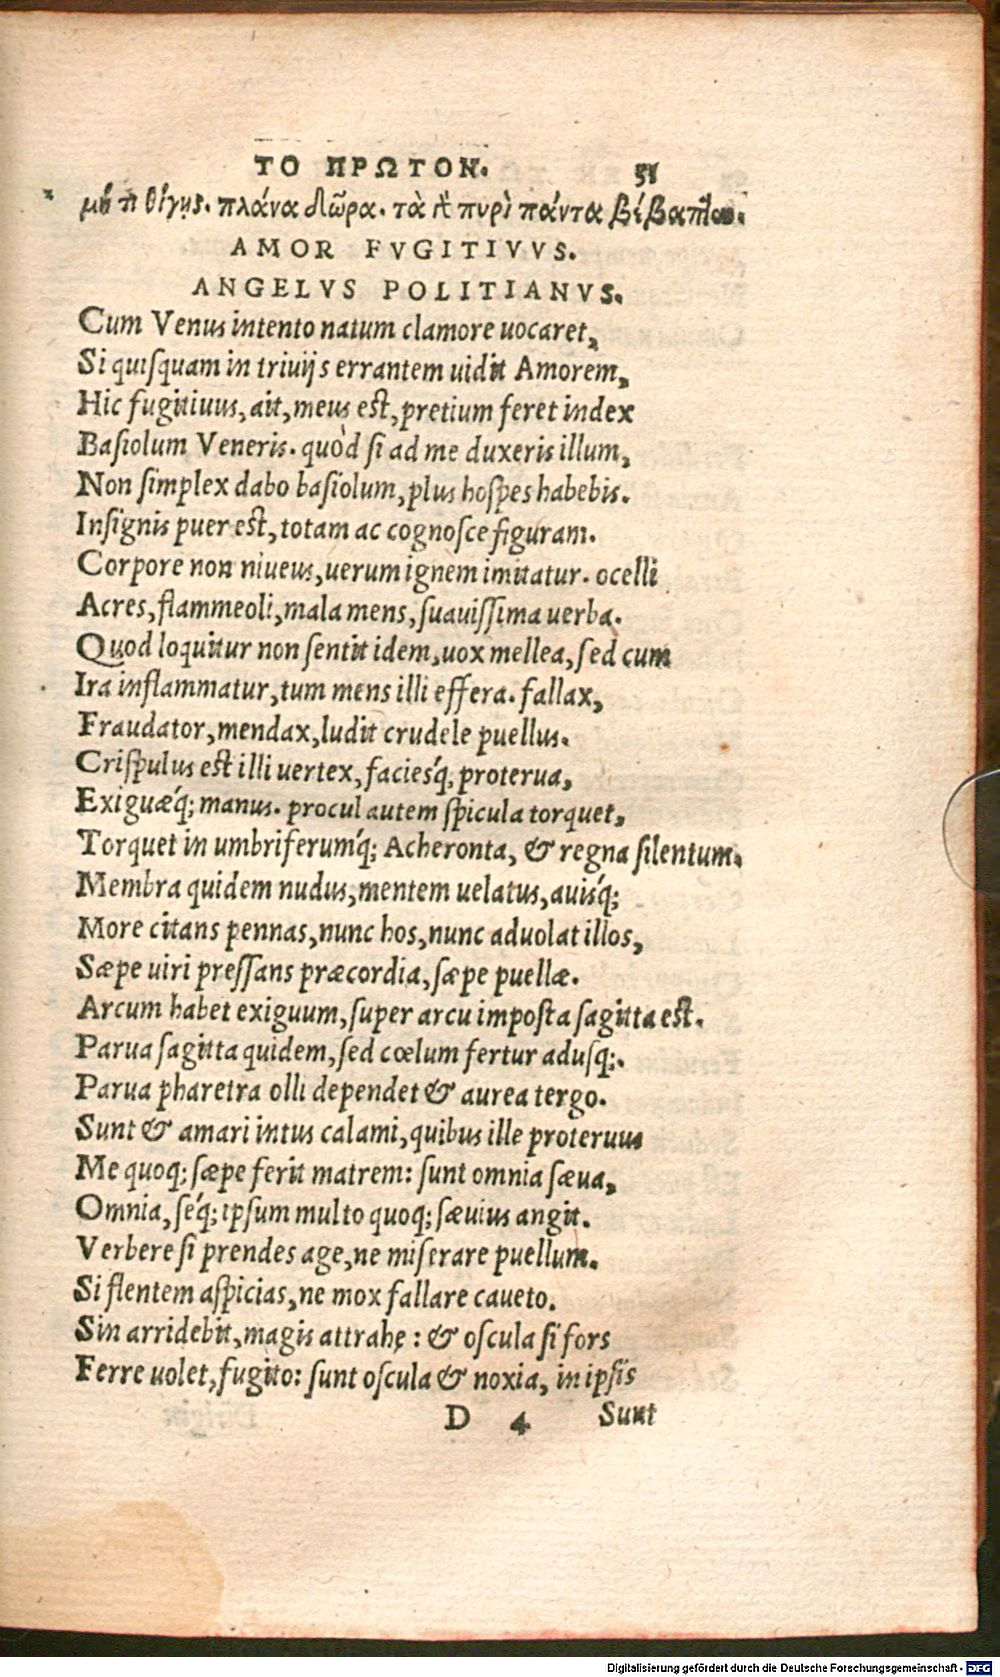 ΤΟ ΠΡΩΤΟΝ. 51
μή τι θίγῃς. πλάνα δῶρα. τὰ δὲ πυρὶ πάντα βέβαπται.
AMOR FVGITIVVS.
ANGELVS POLITIANVS.
Cum Venus intento natum clamore uocaret,
Si quiſquam in triuijs errantem uidit Amorem,
Hic fugitiuus, ait, meus eſt, pretium feret index
Baſiolum Veneris. quòd ſi ad me duxeris illum,
Non ſimplex dabo baſiolum, plus hoſpes habebis.
Inſignis puer eſt, totam ac cognoſce figuram.
Corpore non niueus, uerum ignem imitatur. ocelli
Acres, flammeoli, mala mens, ſuauiſſima uerba.
Quod loquitur non ſentit idem, uox mellea, ſed cum
Ira inflammatur, tum mens illi effera. fallax,
Fraudator, mendax, ludit crudele puellus.
Criſpulus eſt illi uertex, facieśq, proterua,
Exiguæq́; manus. procul autem ſpicula torquet,
Torquet in umbriferumq́; Acheronta, & regna ſilentum.
Membra quidem nudus, mentem uelatus, auisq́;
More citans pennas, nunc hos, nunc aduolat illos,
Sæpe uiri preſſans præcordia, ſæpe puellæ.
Arcum habet exiguum, ſuper arcu impoſta ſagitta eſt.
Parua ſagitta quidem, ſed cœlum fertur aduſq;.
Parua pharetra olli dependet & aurea tergo.
Sunt & amari intus calami, quibus ille proteruus
Me quoq; ſæpe ferit matrem: ſunt omnia ſæua,
Omnia, ſeq́; ipſum multo quoq; ſæuius angit.
Verbere ſi prendes age, ne miſerare puellum.
Si flentem aſpicias, ne mox fallare caueto.
Sin arridebit, magis attrahe: & oſcula ſi fors
Ferre uolet, fugito: ſunt oſcula & noxia, in ipſis
D 4 Sunt
Digitalisierung gefördert durch die Deutsche Forschungsgemeinschaft - DFG